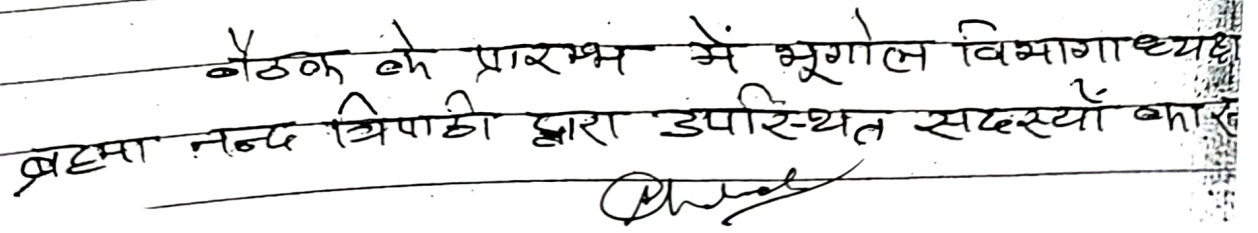 बैठक के प्रारम्भ में भूगोल विभागाध्यक्ष
ब्रहमा नन्द त्रिपाठी द्वारा उपस्थित सदस्यों का